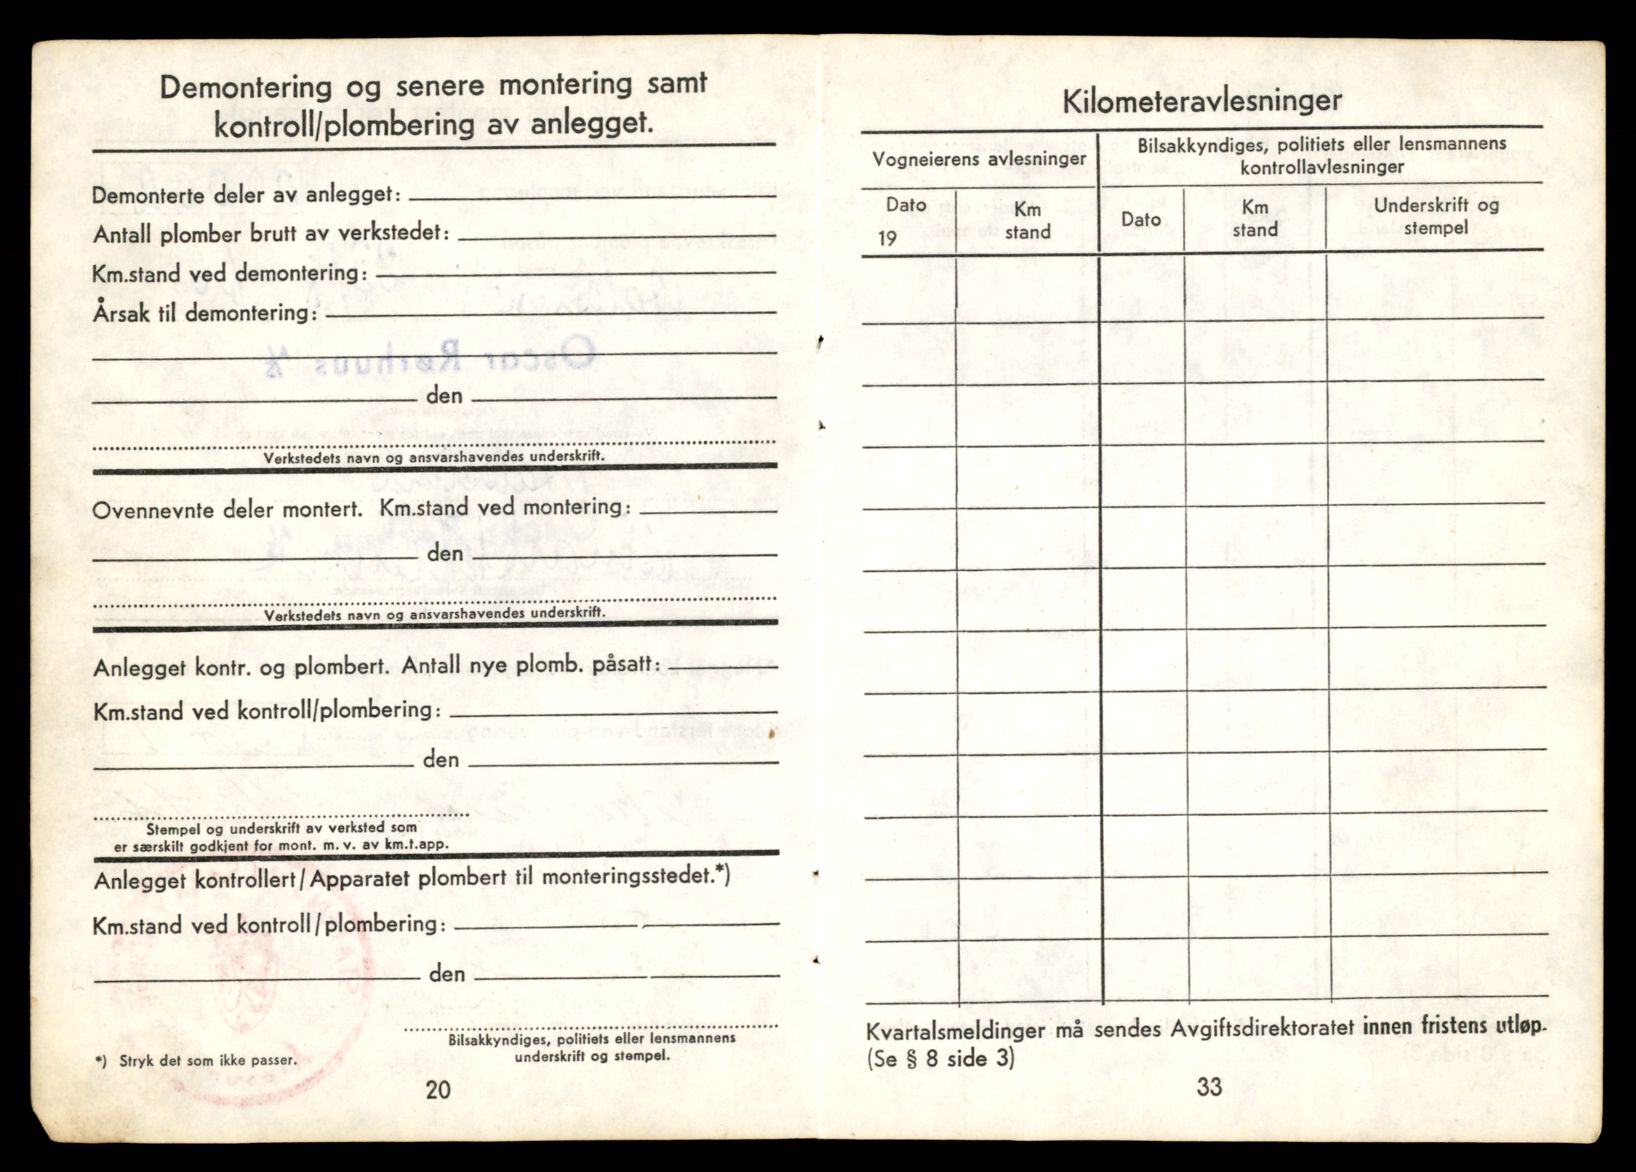 Demontering og senere montering samt
kontroll/plombering av anlegget.
Demonterte deler av anlegget:
Antall plomber brutt av verkstedet:
Km.stand ved demontering:
Årsak til demontering:
den
Verkstedets navn og ansvarshavendes underskrift.
Ovennevnte deler montert. Km.stand ved montering:
den
Verkstedets navn og ansvarshavendes underskrift.
Anlegget kontr. og plombert. Antall nye plomb. påsatt:
Km.stand ved kontroll/plombering:
den
Stempel og underskrift av verksted som
er særskilt godkjent for mont. m. v. av km.t.app.
Anlegget kontrollert/Apparatet plombert til monteringsstedet.*)
Km.stand ved kontroll/plombering:
den
Bilsakkyndiges, politiets eller lensmannens
underskrift og stempel.
*) Stryk det som ikke passer.
20
Kilometeravlesninger
Vogneierens avlesninger
Bilsakkyndiges, politiets eller lensmannens
kontrollavlesninger
Dato
19
Km
stand
Dato
Km
stand
Underskrift og
stempel
Kvartalsmeldinger må sendes Avgiftsdirektoratet innen fristens utløp.
(Se § 8 side 3)
33
Oscar Rørhuus A/S